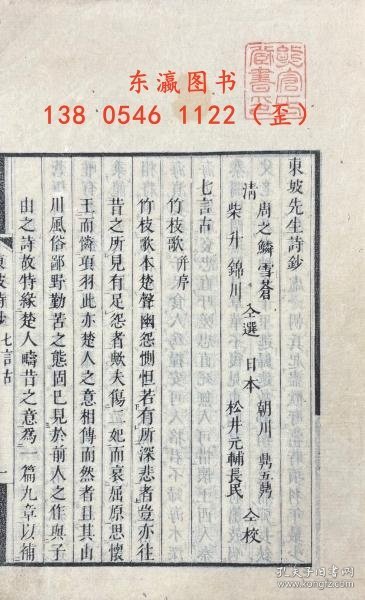 东瀛图书
138 0546 1122（歪）
東坡先生詩鈔
清 周之鱗雪蒼 柴升錦川 仝選 日本 朝川鼎五鼎 松井元輔長民 仝校
七言古
竹枝歌并序
竹枝歌本楚聲幽怨惻怛若有所深悲者豈亦往
昔之所見有足怨者歟夫傷二妃而哀屈原思懷
王而憐項羽此亦楚人之意相傳而然者且其山
川風俗鄙野勤苦之態固已見於前人之作與子
由之詩故特緣楚人疇昔之意爲一篇九章以補
東坡詩鈔 七言古 一
孔夫子旧书网